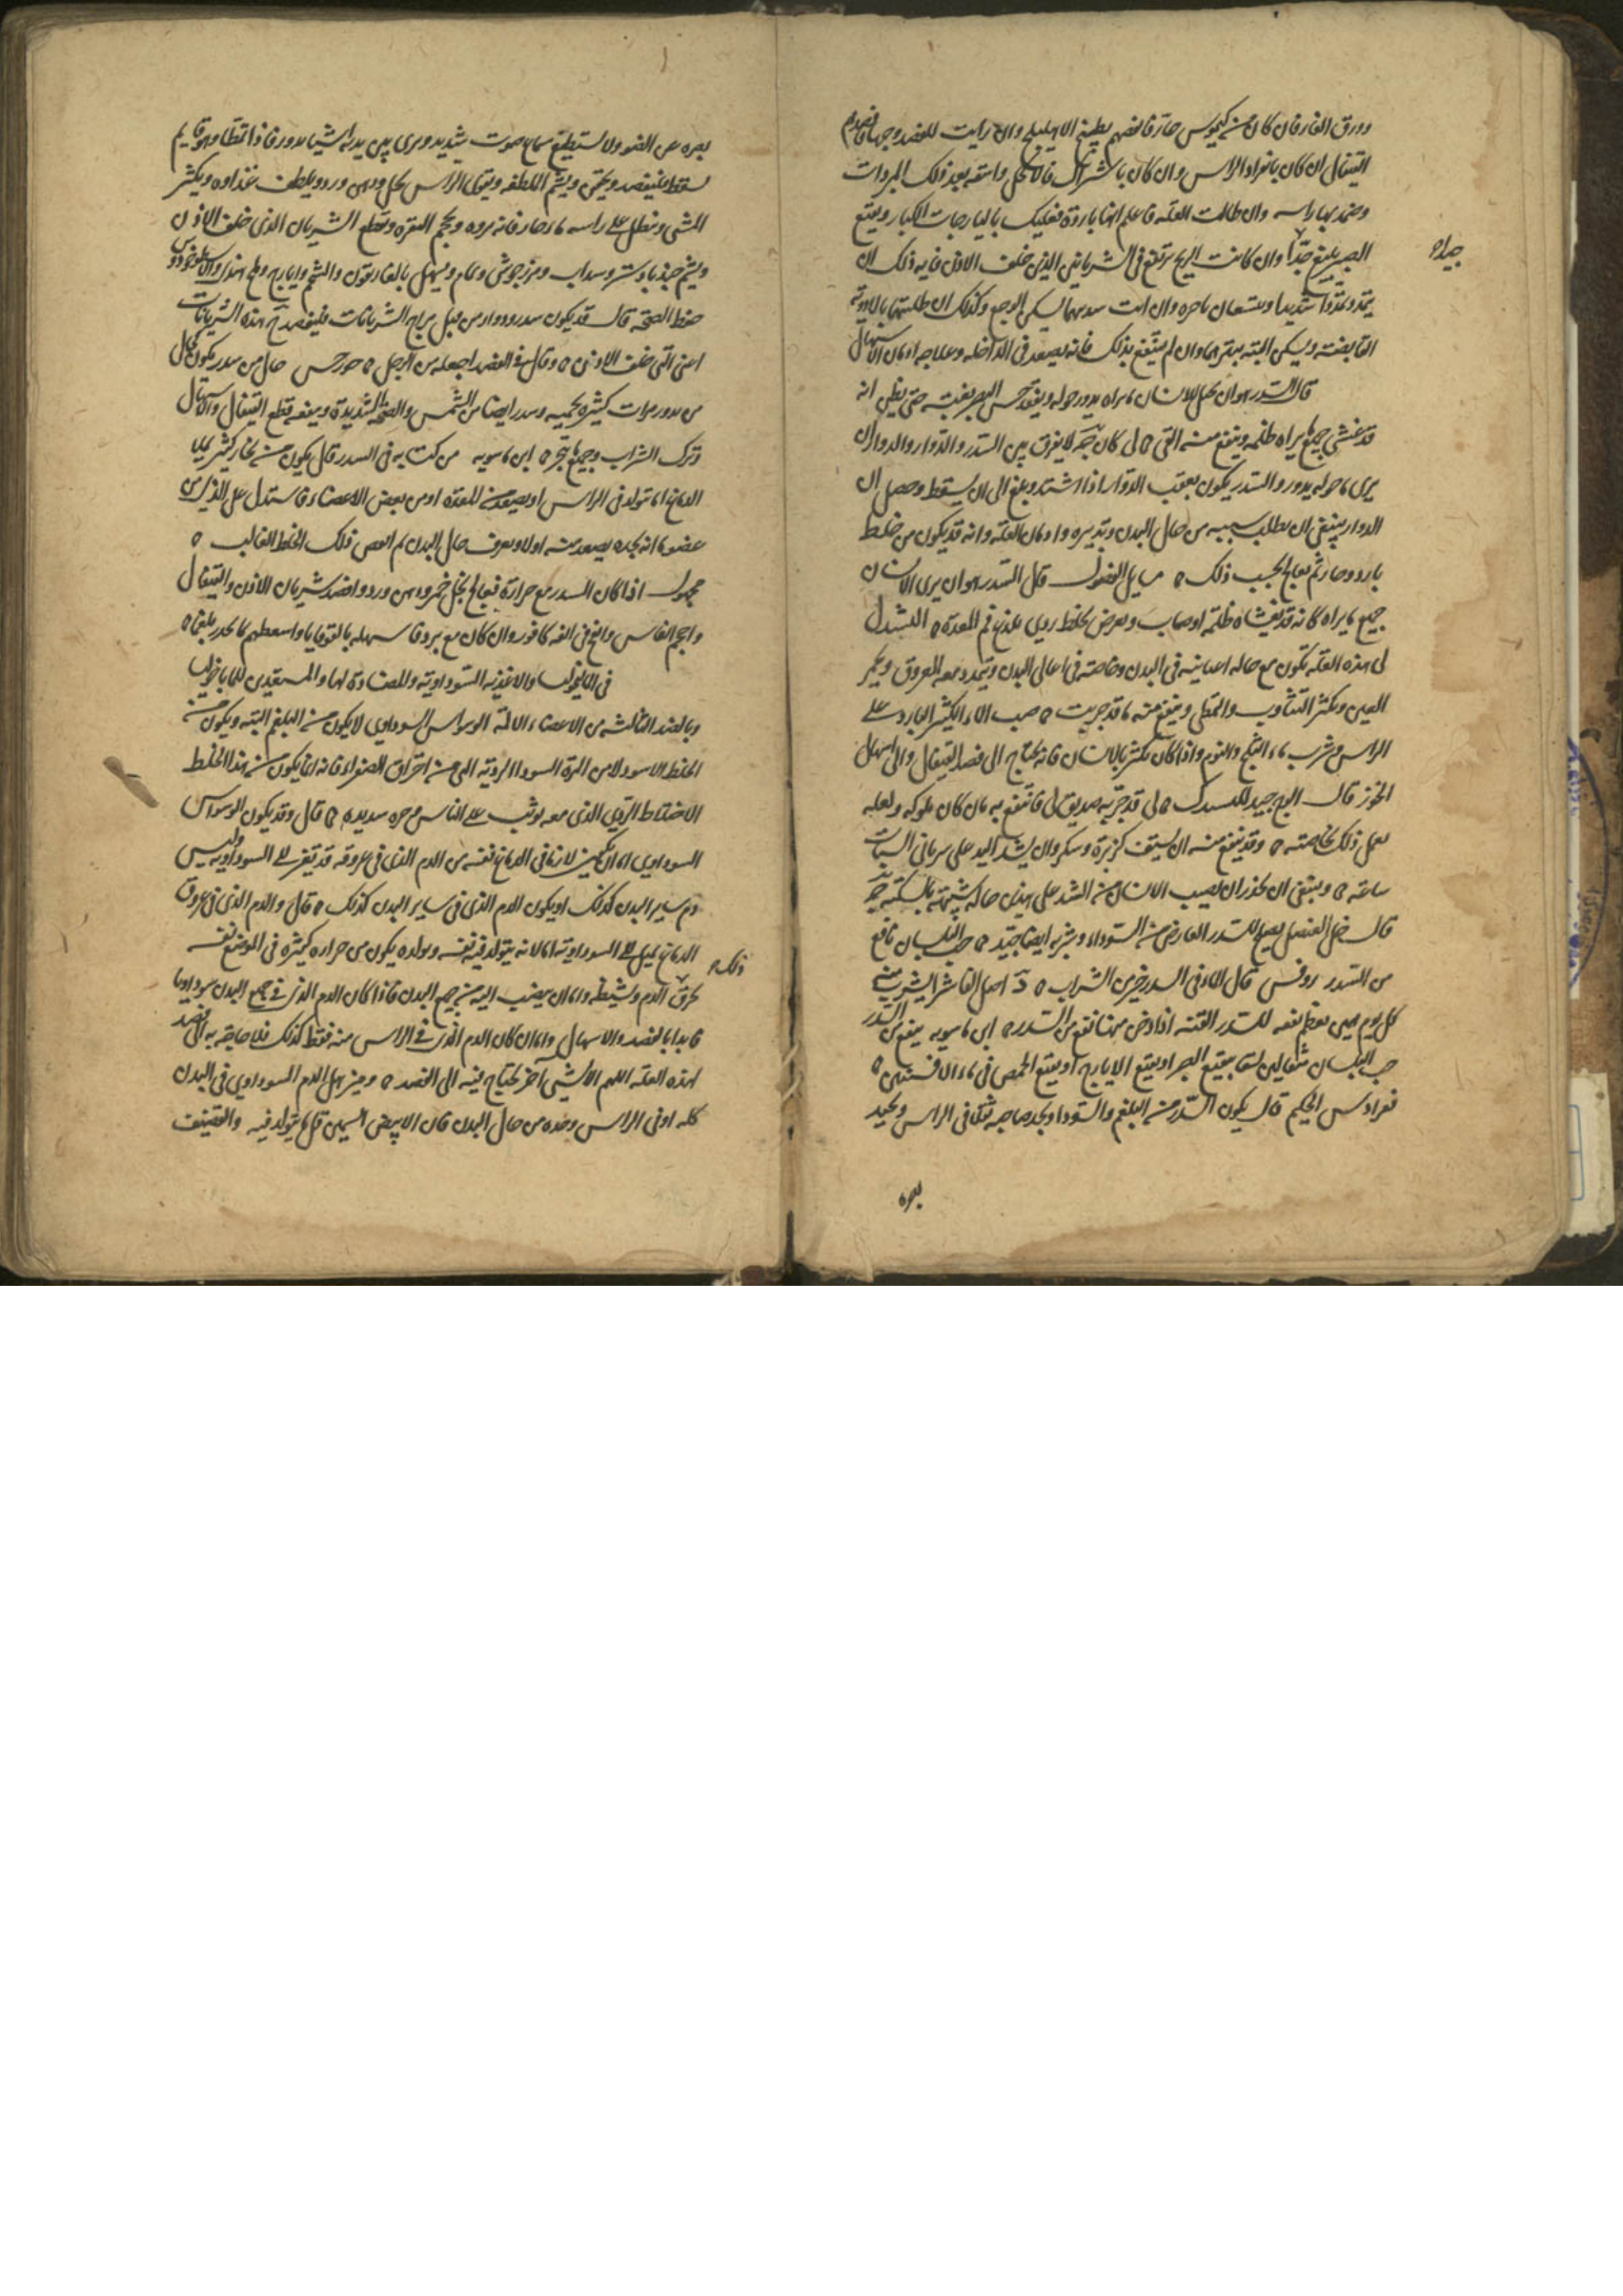 وورق الغار فان كان من كيموس حار فانفضهم بطبيخ الاهليلج وان رايت للفصد وجها فافصدهم
القيفال ان كان بانفراد الراس وان كان باشتراك فالاكحل واسقه بعد ذلك المبردات
وضمد بها راسه وان طالت العلة فاعلم انها باردة فعليك باليارجات الكبار وبنقيع
الصبر ينتفع جدا وان كانت الريح ترتفع في الشريانين الذين خلف الاذن فايه ذلك ان
جيدا
يتمدد تمددا شديدا وان سددتهما يسكن الوجع وكذلك ان طليتهما بالادوية
القابضة ويسكن البتة ببترهما وان لم ينتفع بذلك فانه يصعد في الداخلة وعلاجه ادمان الاسهال
قال السدر هو ان يخيل للانسان ما يراه يدور حوله ويفقد حس البصر بغتة حتى يظن انه
قد غشي جميع ما يراه ظلمه وينفع منه القي لى كان لا يفرق بين السدر والدوار والدوار ان
يرى ما حوله يدور والسدر يكون بعقب الدوار اذا اشتد وبلغ الى ان يسقط وحصل ان
الدوار ينبغي ان يطلب سببه من حال البدن وتدبيره وادمان العلة وانه قد يكون من خلط
بارد وحار ثم يعالج بحسب ذلك مسايل الفصول قال السدر هو ان يرى الانسان
جميع ما يراه كانه قد تغشاه ظلمة او ضباب ويعرض لخلط ردي يلذع فم المعدة
لى هذه العلة تكون مع حاله امتلائية في البدن وخاصة في اعالي البدن وتمدد معه العروق وتحمر
العين ويكثر التثاوب والتمطي وينفع منه ما قد جربت صب الماء الكثير البارد على
الراس وشرب ماء الثلج والنوم واذا كان يكثر بالانسان فانه يحتاج الى فصد القيفال والى اسهال
الخوز قال البنج جيد للسدر لى قد جربه صديق لى فانتفع به
يعمل ذلك بخاصته وقد ينفع منه ان يستف كزبرة وسكر وان يشد اليد على شرياني السبات
ساعة وينبغي ان يحذر ان يصيب الانسان من الشد على هذين حاله شبيهة بالسكتة
قال خل العنصل يصلح للسدر العارض من السوداء وشربه ايضا جيد حب البلسان نافع
من السدر روفس قال الماء في السدر خير من الشراب د اصل الفاشرا يشرب منه
كل يوم يعظم نفعه للسدر القنة اذا دخن بها نفع من السدر ابن ماسويه ينفع من السدر
حب البلسان مثقالين بنقيع الصبر او بنقيع الايارج او بنقيع الحمص في ماء الافسنتين
الحكيم قال يكون السدر من البلغم والسودا ويجد صاحبه ثقلا في الراس ويجد
بصره
بصره من الضو ولا يستطيع سماع صوت شديد ويرى بين يديه اشيا تدور فاذا تمطا وهو قايم
سقط فليفصد ويحتمي ويشم الملطفه ويقوى الراس بخل ودهن ورد ويلطف غذاوه ويكثر
المشي وينطل على راسه ماء حار فانه يروه ويحجم النقره ويقطع الشريان الذي خلف الاذن
ويشم جندبادستر وسداب ومرزنجوش ونمام ويسهل بالغاريقون والشحم وايارج وملح هندي
حفظ الصحة قال قد يكون سدر ودوار من قبل مزاج الشريانات فليفصد هذه الشريانات
اعني التي خلف الاذن وقال في الفصد اجعله من الرجل جورجس قال من سدر يكون كان
من يدور مرات كثيرة يحميه وسدر ايضا من الشمس والصيحة الشديدة وينفعه قطع القيفال والاسهال
وترك الشراب وجميع ما يبخر ابن ماسويه من كتابه في السدر قال يكون من بخار كثير يملا
الدماغ اما تولد في الراس او يصعد من المعدة او من بعض الاعضاء فاستدل على الذي من
عضو ما انه يجده يصعد منه اولا ويعرف حال البدن ثم انفض ذلك الخلط الغالب
مجهول اذا كان السدر مع حرارة فيعالج بخل خمر ودهن ورد وافصد شريان الاذن والقيفال
واحجم الفاس وانفخ في انفه كافور وان كان مع برد فاسهله بالقوقايا واسعطهم بما يحدر بلغما
في المالنخوليا والاغذيه السوداوية والمضادة لها والمستعدين للماليخوليا
وبالضد الثالثة من الاعضاء الالمة الوسواس السوداوي لا يكون من البلغم البتة ويكون من
الخلط الاسود لا من المرة السودا الردية التي من احتراق الصفراء فانه انما يكون من هذا الخلط
الاختلاط الردي الذي معه توثب على الناس مع حده شديده قال وقد يكون الوسواس
السوداوي اما ان يكون لان ما في الدماغ نفسه من الدم الذي في عروقه قد تغير الى السوداويه وليس
دم ساير البدن كذلك او يكون الدم الذي في ساير البدن كذلك قال والدم الذي في عروق
الدماغ يميل الى السوداوية اما لانه يتولد فيه نفسه وتولده يكون من حراره كثيرة في الموضع نفسه
ذلك
تحرق الدم وتشيطه واما ان ينصب اليه من جميع البدن فاذا كان الدم الذي في جميع البدن سوداويا
فابدا بالفصد والاسهال واما ان كان الدم الذي في الراس منه فقط كذلك فلا حاجة به الى الفصد
لهذه العلة اللهم الا لشي آخر يحتاج فيه الى الفصد وميز هل الدم السوداوي في البدن
كله او في الراس وحده من حال البدن فان الابيض السمين قل ما يتولد فيه والقضيف